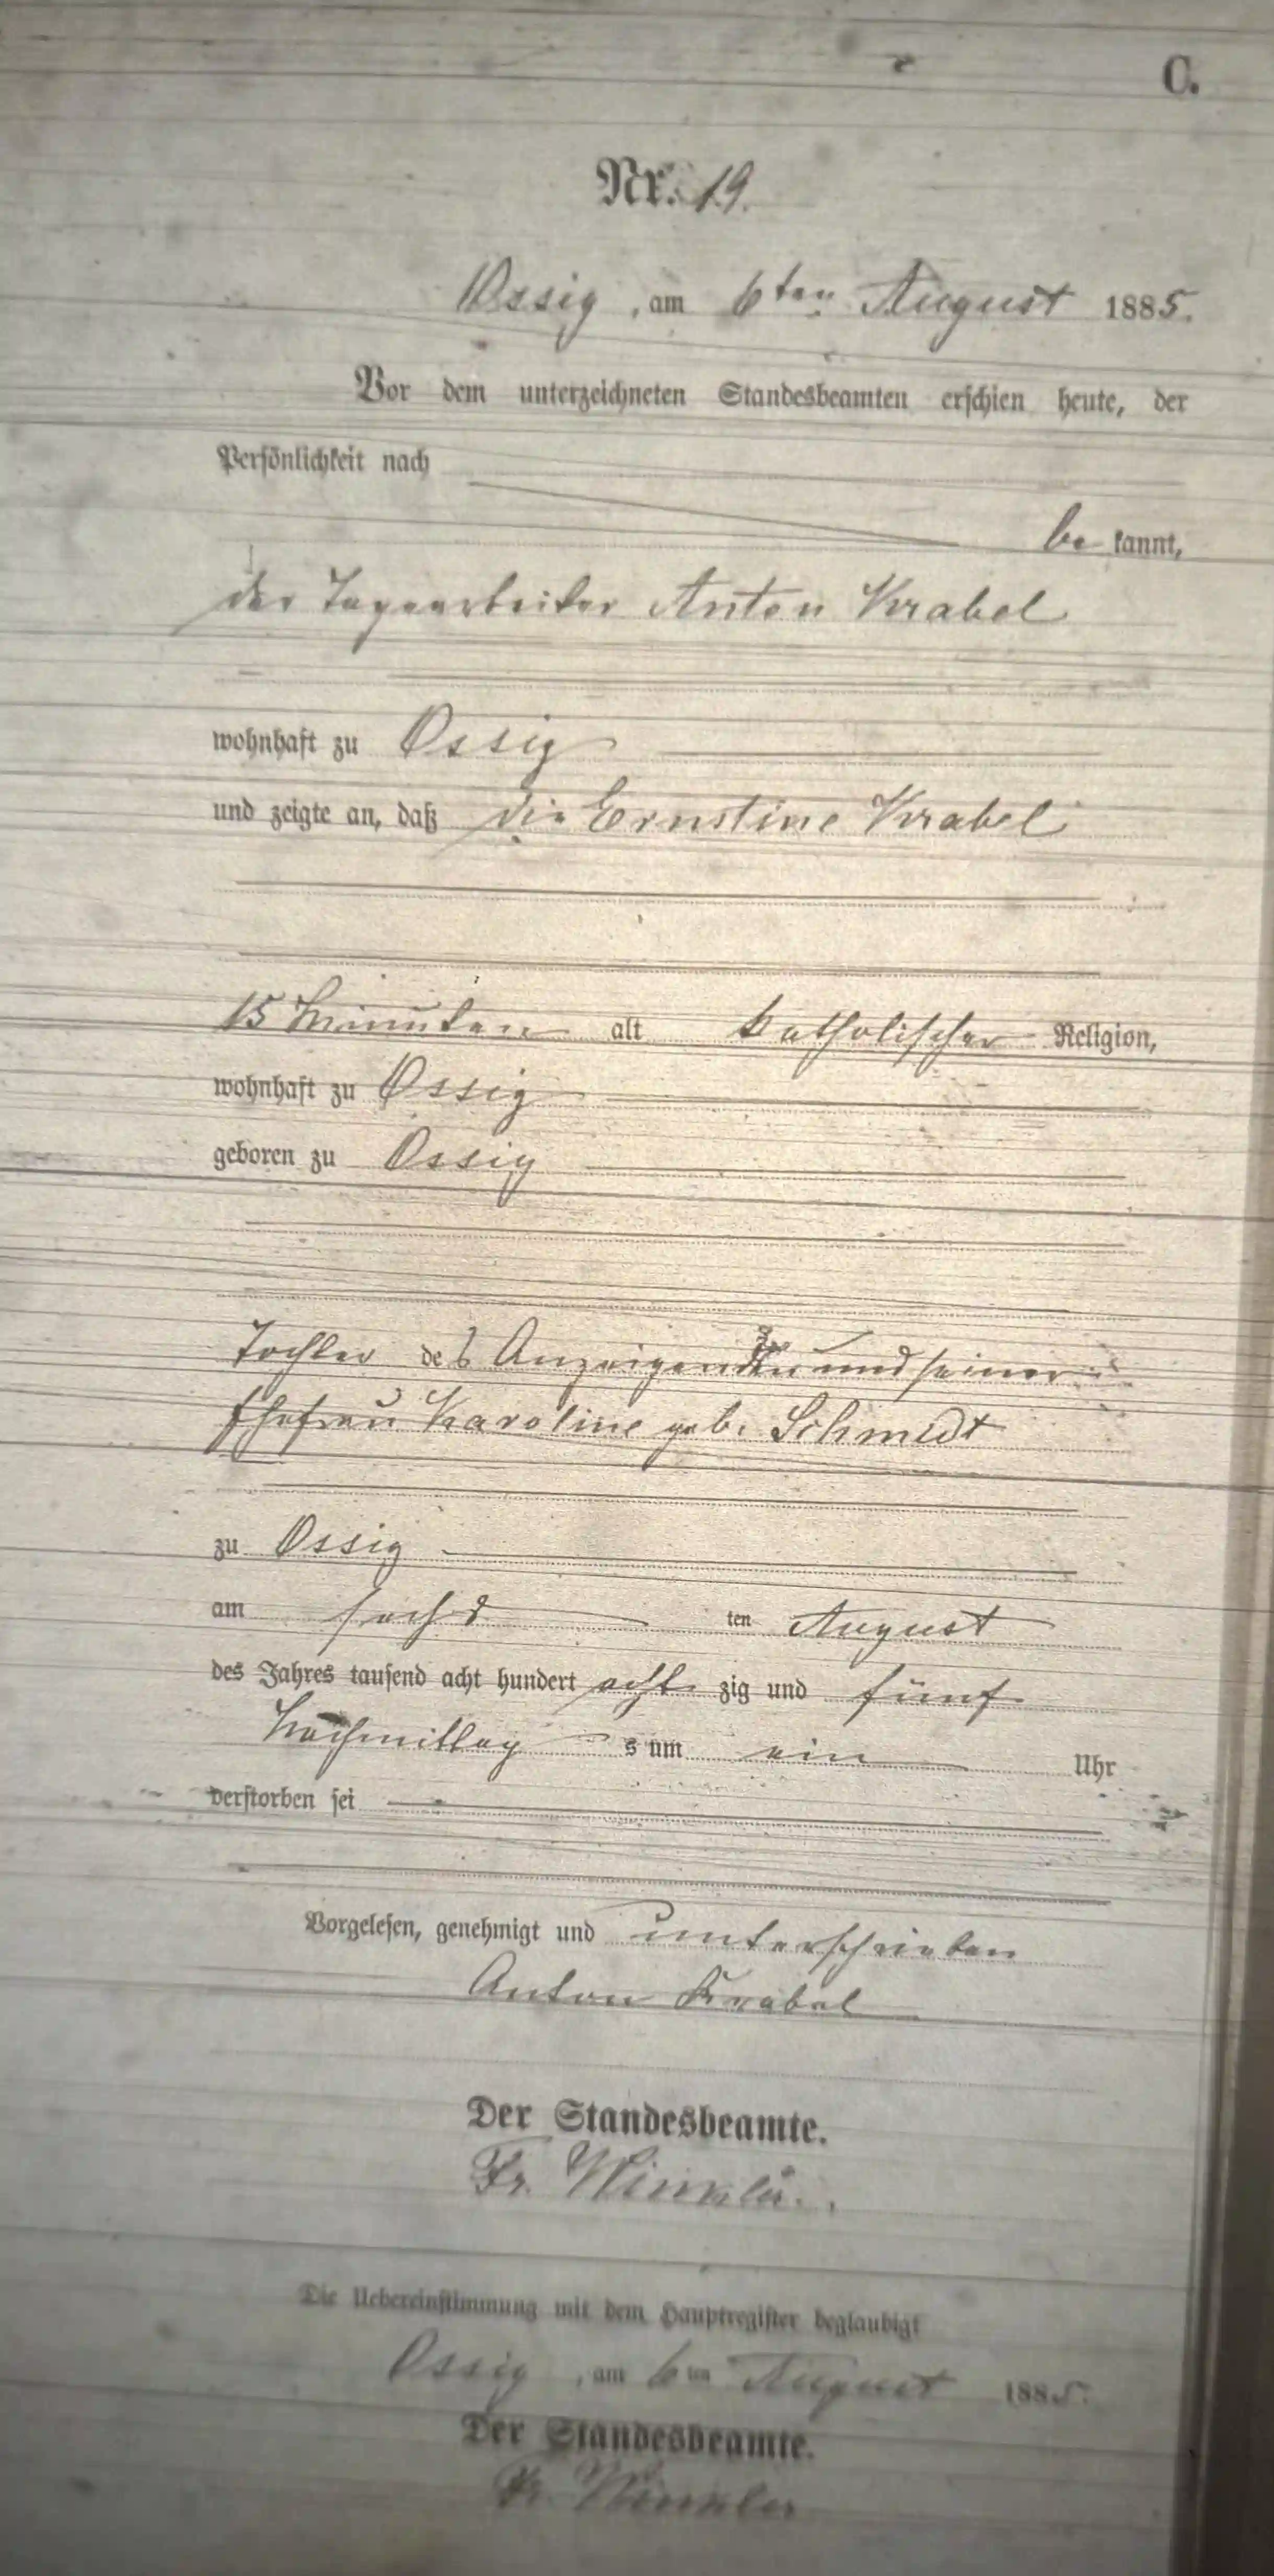 C.
Nr. 19.
Ossig, am 6ten August 1885.
Vor dem unterzeichneten Standesbeamten erschien heute, der
Persönlichkeit nach
be kannt,
der Tagearbeiter Anton Krabel
wohnhaft zu Ossig
und zeigte an, daß die Ernstine Krabel
15 Minuten alt katholischer Religion,
wohnhaft zu Ossig
geboren zu Ossig
Tochter des Anzeigenden und seiner
Ehefrau Karoline geb. Schmidt
zu Ossig
am sechs ten August
des Jahres tausend acht hundert acht zig und fünf
Nachmittag s um ein Uhr
verstorben sei
Vorgelesen, genehmigt und unterschrieben
Anton Krabel
Der Standesbeamte.
Fr. Winkler.
Die Uebereinstimmung mit dem Hauptregister beglaubigt
Ossig, am 6ten August 1885.
Der Standesbeamte.
Fr. Winkler